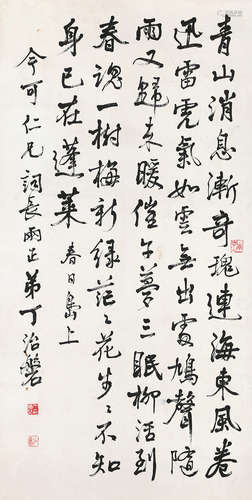 青山消息漸奇瑰連海東風卷
迅雷霓氣如雲無出處鳩聲隨
雨又歸來暖催午夢三眠柳活到
春魂一樹梅新綠茫〻花步〻不知
身已在蓬萊 春日島上
今可仁兄詞長雨正弟丁治磐